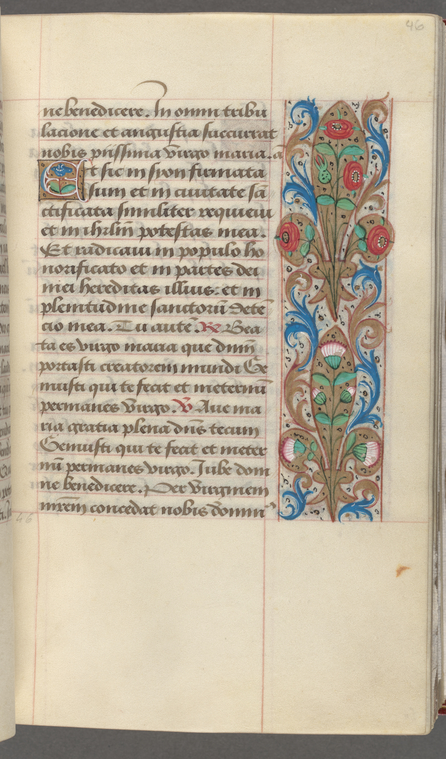 46
ne benedicere. In omni tribu
lacione et angustia succurrat
nobis piissima virgo maria. a
Et sic in sion firmata
sum et in civitate sā
ctificata similiter requieui
et in ihrlm̄ potestas mea.
Et radicaui in populo ho
norificato et in partes dei
mei hereditas illius: et in
plenitudine sanctorū detē
cio mea. Tu autē. R⁊ Bea
ta es virgo maria que dn̄m
portasti creatorem mundi Ge
nuisti qui te fecit et in eternū
permanes virgo. V̄ Aue ma
ria gratia plena dn̄s tecum
Genuisti qui te fecit et in eter
nū permanes virgo. Iube dom
ne benedicere. Per virginem
mr̄em concedat nobis domin⁹
46